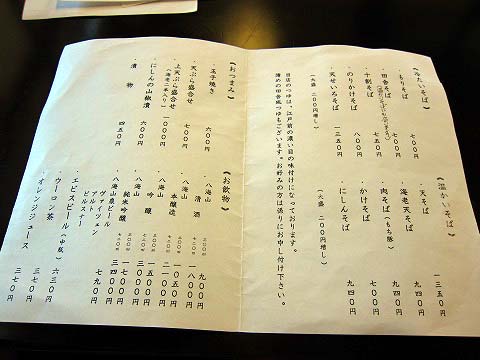 《冷たいそば》
・もりそば 七〇〇円
・田舎そば 七五〇円
・十割そば 八〇〇円
・のりかけそば 八〇〇円
・天せいろそば 一三五〇円
(大盛 二〇〇円増し)
《温かいそば》
・天そば 一三五〇円
・海老天そば 九四〇円
・肉そば(もち豚) 九四〇円
・かけそば 七〇〇円
・にしんそば 九四〇円
(大盛 二〇〇円増し)
当店のつゆは、江戸前の濃い目の味付けになっております。
薄めの田舎風つゆもございます。お好みの方は係りにお申し付け下さい。
《おつまみ》
・玉子焼き 六〇〇円
・天ぷら盛合せ 七〇〇円
・上天ぷら盛合せ
(海老二本入り) 一〇〇〇円
・にしんの山椒漬 六〇〇円
・漬物 四五〇円
《お飲物》
・八海山 清酒 九〇〇円
・八海山 本醸造 一〇五〇円
・八海山 吟醸 一五〇〇円
・八海山 純米吟醸
・八海山泉ビール 七九〇円
ヴァイツェン
アルト
ピルスナー
・エビスビール(中瓶) 六三〇円
・ウーロン茶 三七〇円
・オレンジジュース 三七〇円